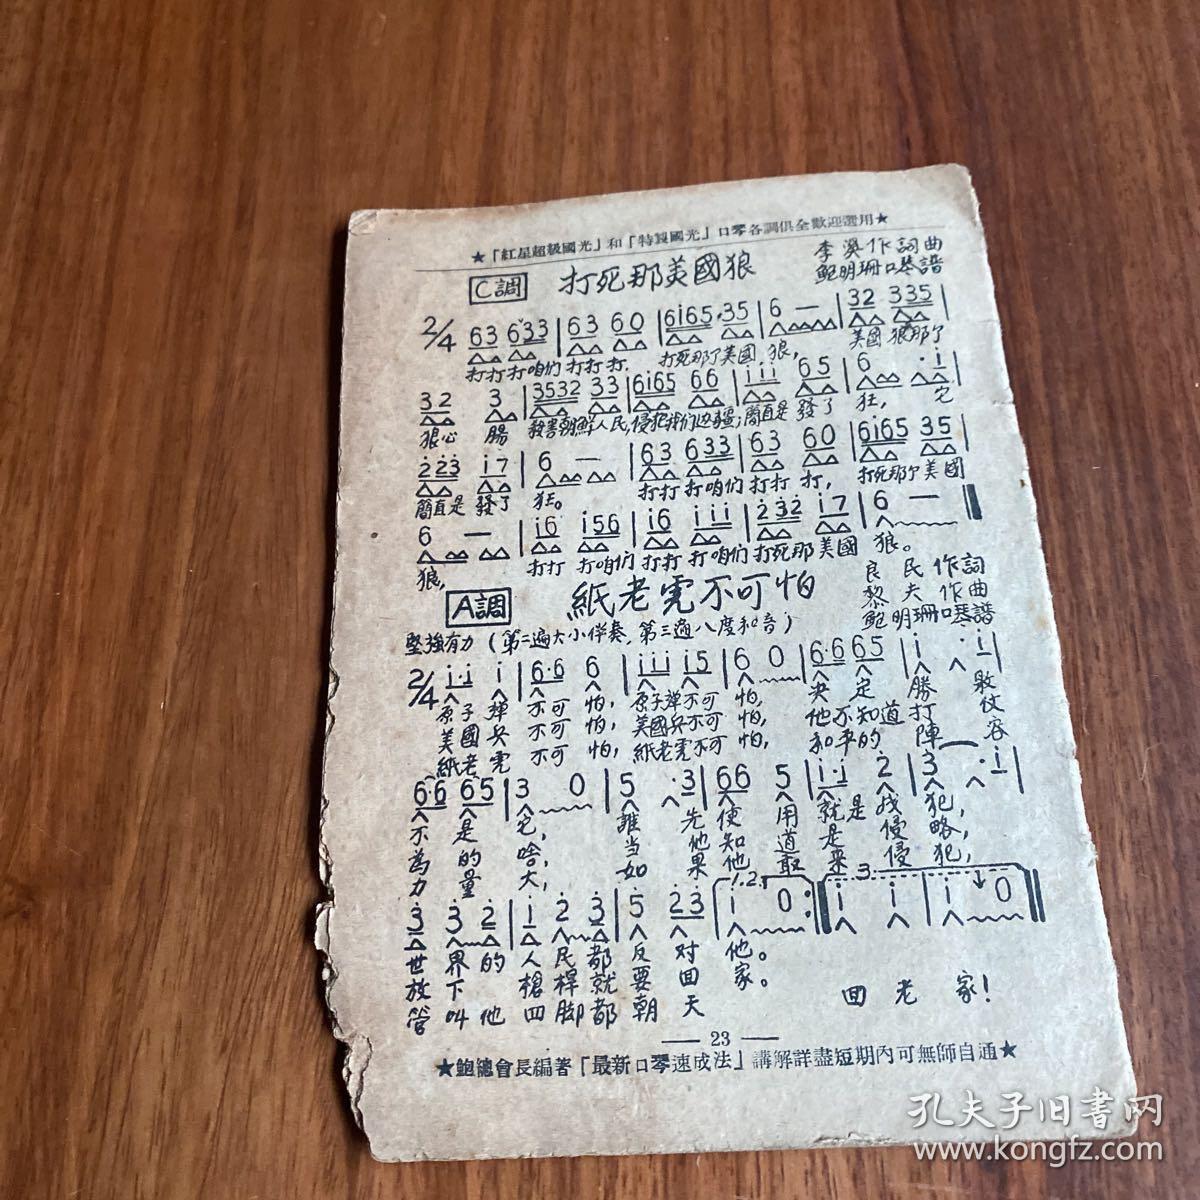 ★「紅星超級國光」和「特製國光」口琴各調俱全歡迎選用★
C調 打死那美國狼
李溪作詞曲
鮑明珊口琴譜
2/4 63 633 | 63 60 | 6i65 35 | 6 — | 32 335 |
打打打咱们 打打打, 打死那了美國 狼, 美國狼那了
32 3 | 3532 33 | 6i65 66 | iii 65 | 6 ·i |
狼心 腸 殺害朝鮮人民,侵犯我们边疆;簡直是 發了 狂, 它
223 i7 | 6 — | 63 633 | 63 60 | 6i65 35 |
簡直是 發了 狂。 打打 打咱们 打打 打, 打死那了美國
6 — — | i6 i56 | i6 iii | 232 i7 | 6 — ‖
狼, 打打 打咱们 打打 打咱们 打死那 美國 狼。
A調 紙老虎不可怕
良民作詞
黎夫作曲
鮑明珊口琴譜
堅強有力(第二遍大小伴奏,第三遍八度和音)
2/4 i·i i | 6·6 6 | iii i5 | 6 0 | 6·6 65 | i ·i |
原子彈 不可怕, 原子彈不可怕, 決定勝敗
美國兵 不可怕, 美國兵不可怕, 他不知道打仗
紙老虎 不可怕, 紙老虎不可怕, 和平的陣容
6·6 65 | 3 0 | 5 ·3 | 66 5 | i·i 2 | 3 ·i |
不是它, 誰先使用就是战犯,
為的啥, 當他知道是侵略,
力量大, 如果他敢來侵犯,
3 3·2 | i 2·3 | 5 23 | 1.2. i 0 :‖ 3. i i | i 0 ‖
世界的人民都反对他。
放下槍桿就要回家。
管叫他四脚都朝天 回老家!
— 23 —
★鮑總會長編著「最新口琴速成法」講解詳盡短期內可無師自通★
孔夫子旧書网
www.kongfz.com